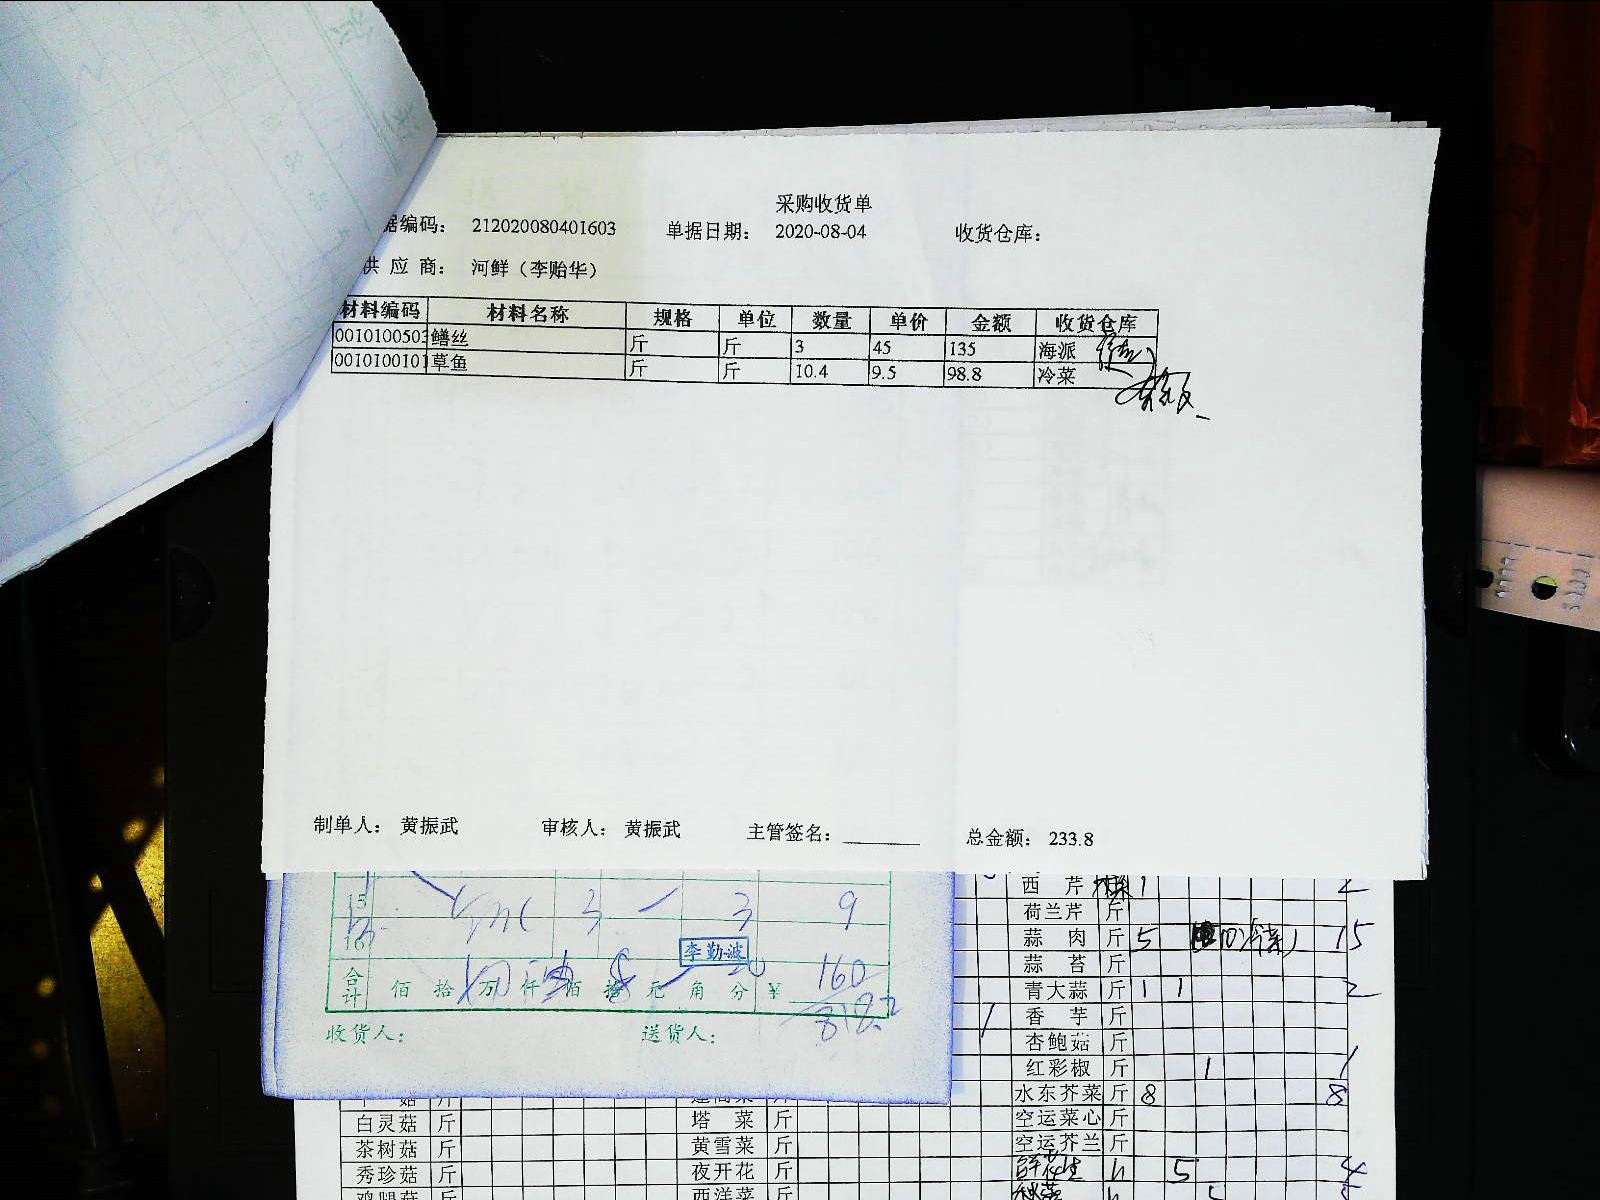 采购收货单
据编码： 212020080401603 单据日期： 2020-08-04 收货仓库：
供 应 商： 河鲜（李贻华）
材料编码 材料名称 规格 单位 数量 单价 金额 收货仓库
0010100503 鳝丝 斤 斤 3 45 135 海派
0010100101 草鱼 斤 斤 10.4 9.5 98.8 冷菜
制单人： 黄振武 审核人： 黄振武 主管签名： 总金额： 233.8
15 3 3 9
16
李勤波
合计 佰 拾 万 仟 佰 拾 元 角 分 ¥ 160
818.2
收货人： 送货人：
西 芹 1 2
荷兰芹 斤
蒜 肉 斤 5 15
蒜 苔 斤
青大蒜 斤 1 1 2
香 芋 斤
杏鲍菇 斤
红彩椒 斤 1 1
水东芥菜 斤 8 8
空运菜心 斤
空运芥兰 斤
5 4
菇 斤
白灵菇 斤 塔 菜 斤
茶树菇 斤 黄雪菜 斤
秀珍菇 斤 夜开花 斤
鸡腿菇 斤 西洋菜 斤